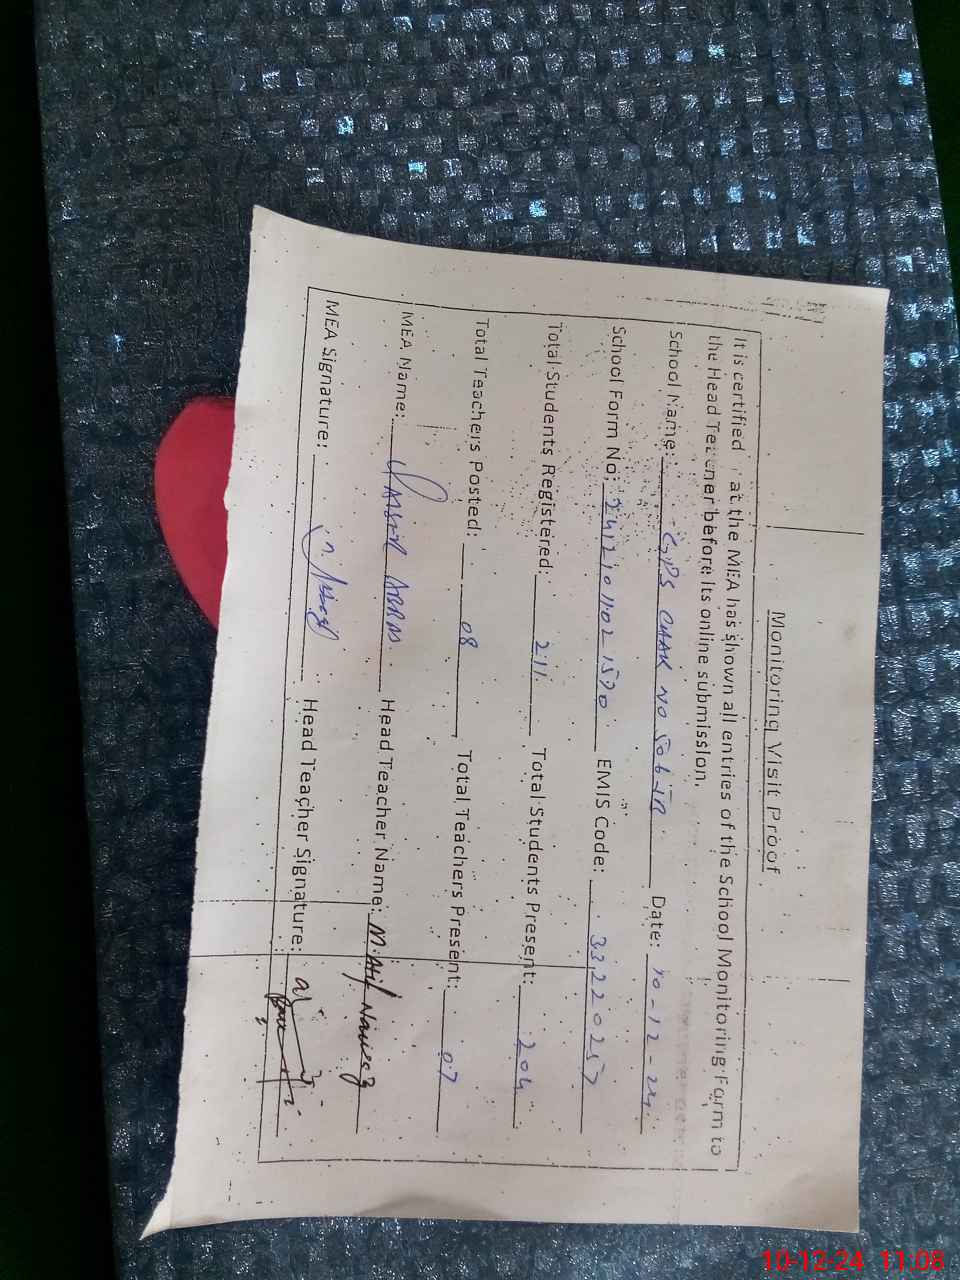 Monitoring Visit Proof
It is certified that the MEA has shown all entries of the School Monitoring Form to
the Head Teacher before its online submission.
School Name: GPS CHAK NO 506 JB Date: 10-12-24
School Form No: 2412101021570 EMIS Code: 33220257
Total Students Registered: 211 Total Students Present: 204
Total Teachers Posted: 08 Total Teachers Present: 07
MEA Name: YAASIR ABBAS Head Teacher Name: M. Atif Nawaz
MEA Signature: Head Teacher Signature:
10-12-24 11:08